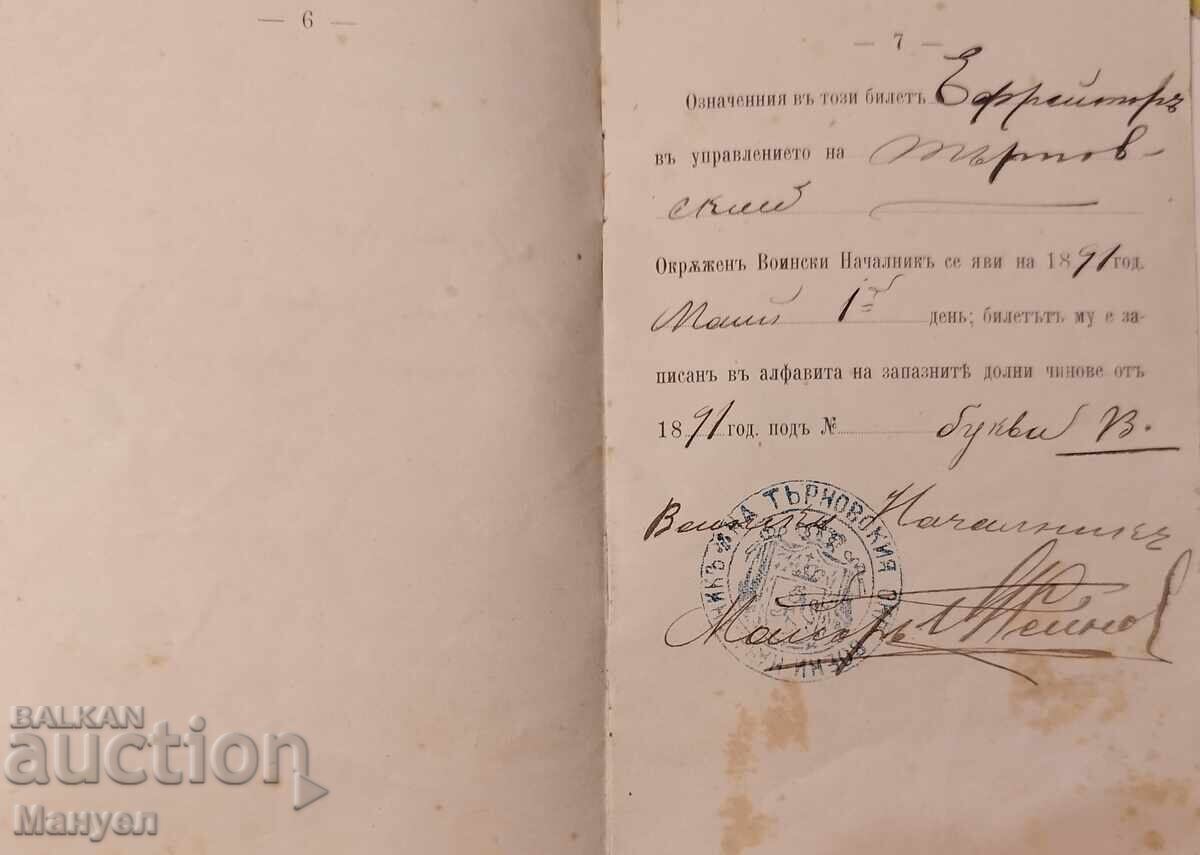 — 6 —
— 7 —
Означенния въ този билетъ Ефрейторъ
въ управлението на Търнов-
ский
Окрѫженъ Воински Началникъ се яви на 1891 год.
Маий 1й день; билетътъ му е за-
писанъ въ алфавита на запазнитѣ долни чинове отъ
1891 год. подъ № буква В.
Воински Началникъ
Майоръ
НА ТЪРНОВСКИЯ
BALKAN
auction
Мануел